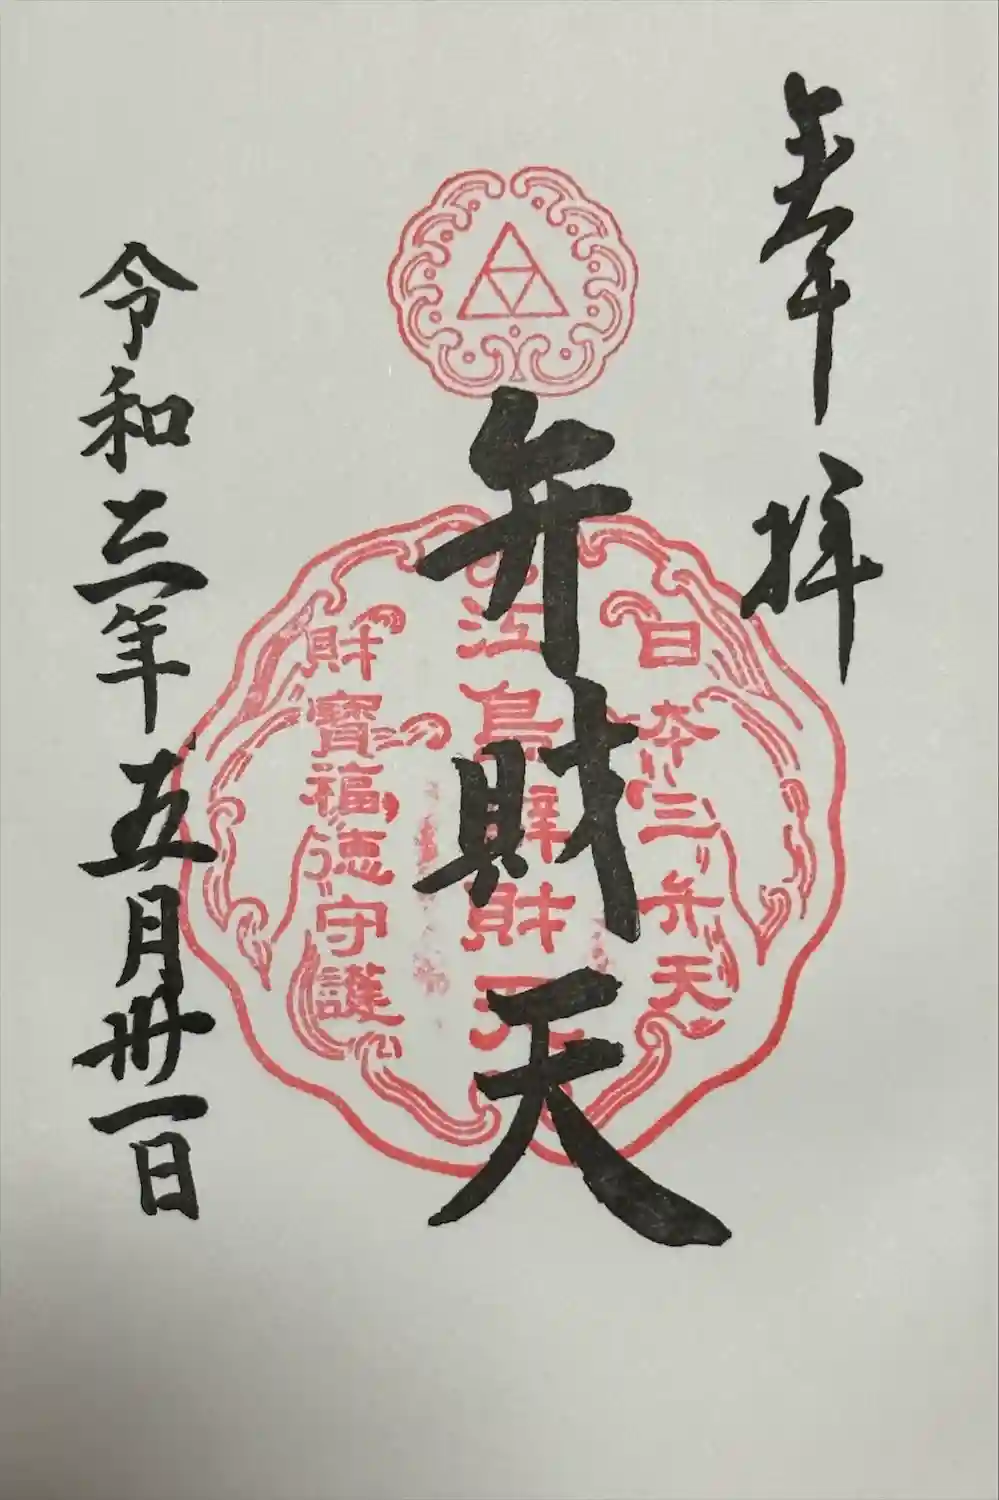 奉拝
日本三弁天
弁財天
江島辨財天
財寶福徳守護
令和三年五月卅一日